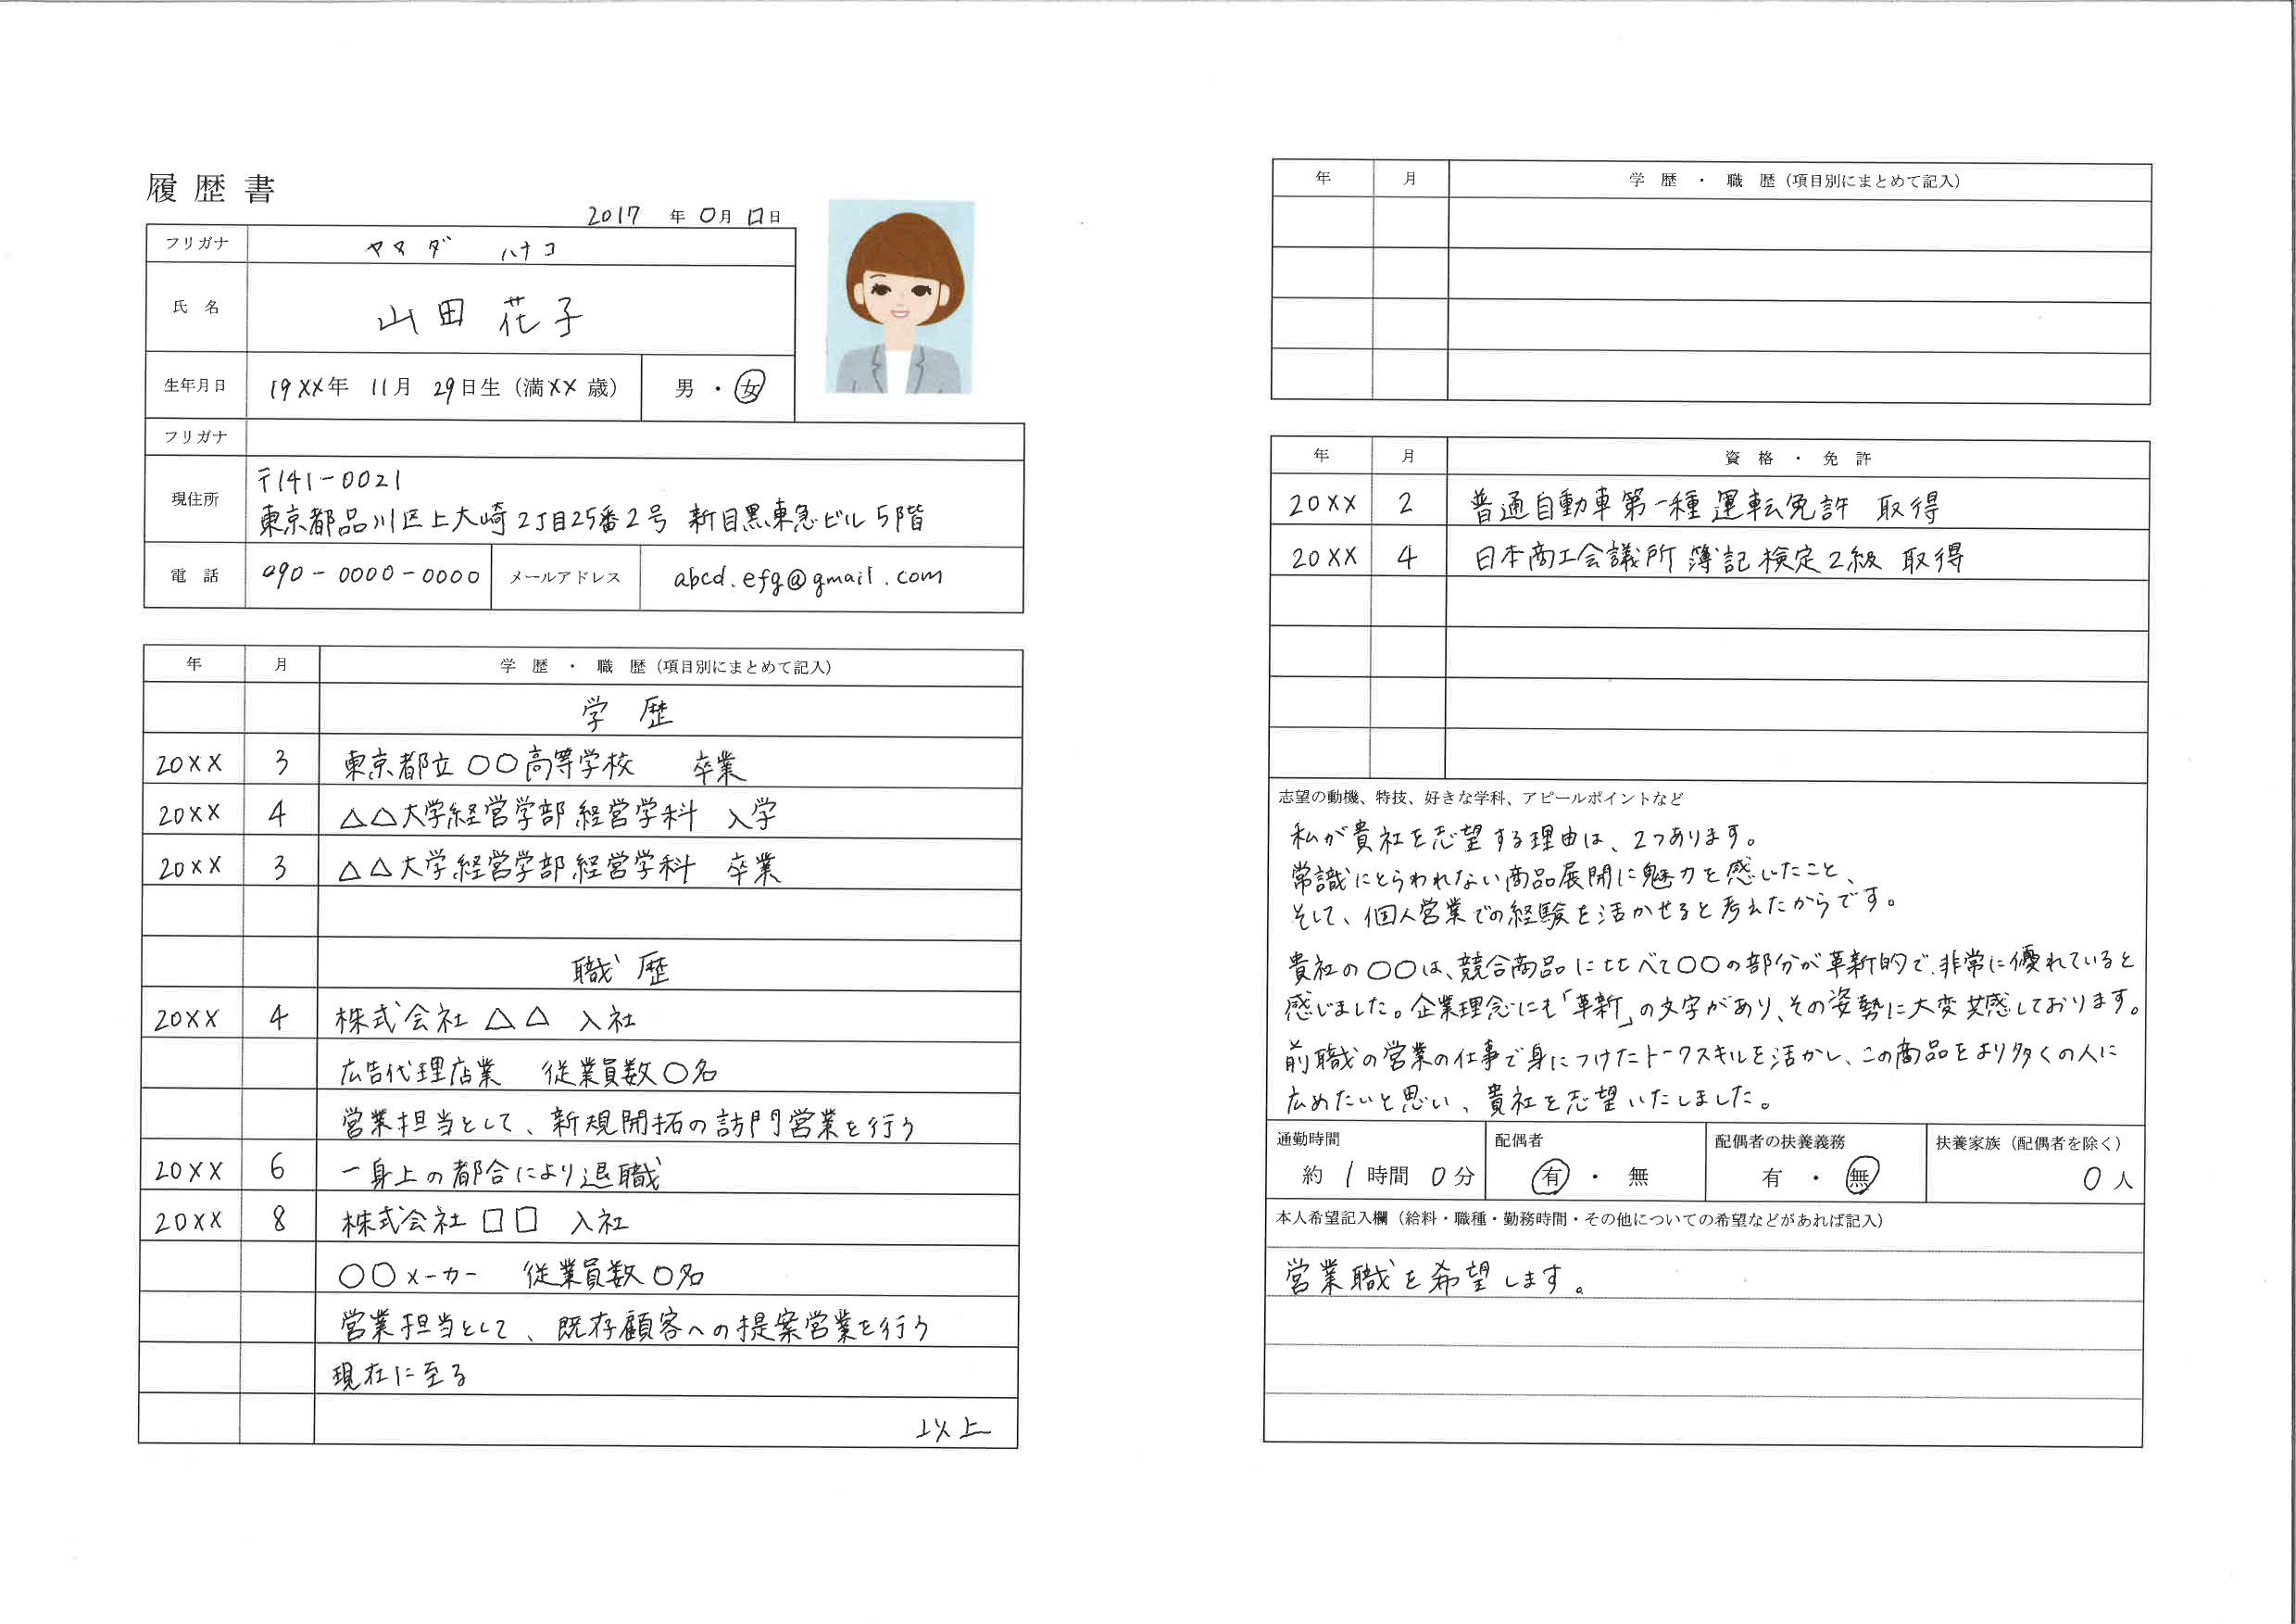 履歴書
2017 年 〇月 口日
フリガナ ヤマダ ハナコ
氏名 山田 花子
生年月日 19XX年 11月 29日生 (満XX 歳) 男・女
フリガナ
現住所 〒141-0021
東京都品川区上大崎2丁目25番2号 新目黒東急ビル5階
電話 090-0000-0000 メールアドレス abcd.efg@gmail.com
年 月 学歴・職歴(項目別にまとめて記入)
学歴
20XX 3 東京都立〇〇高等学校 卒業
20XX 4 △△大学経営学部経営学科 入学
20XX 3 △△大学経営学部経営学科 卒業
職歴
20XX 4 株式会社△△ 入社
広告代理店業 従業員数〇名
営業担当として、新規開拓の訪問営業を行う
20XX 6 一身上の都合により退職
20XX 8 株式会社□□ 入社
〇〇メーカー 従業員数〇名
営業担当として、既存顧客への提案営業を行う
現在に至る
以上
年 月 学歴・職歴(項目別にまとめて記入)
年 月 資格・免許
20XX 2 普通自動車第一種運転免許 取得
20XX 4 日本商工会議所 簿記検定2級 取得
志望の動機、特技、好きな学科、アピールポイントなど
私が貴社を志望する理由は、2つあります。
常識にとらわれない商品展開に魅力を感じたこと、
そして、個人営業での経験を活かせると考えたからです。
貴社の〇〇は、競合商品に比べて〇〇の部分が革新的で、非常に優れていると
感じました。企業理念にも「革新」の文字があり、その姿勢に大変共感しております。
前職の営業の仕事で身につけたトークスキルを活かし、この商品をより多くの人に
広めたいと思い、貴社を志望いたしました。
通勤時間 配偶者 配偶者の扶養義務 扶養家族(配偶者を除く)
約 1 時間 0 分 有・無 有・無 0 人
本人希望記入欄(給料・職種・勤務時間・その他についての希望などがあれば記入)
営業職を希望します。